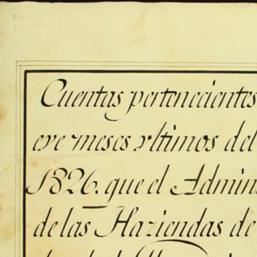 Cuentas pertenecientes
eve meses vltimos del
1826. que el Admin
de las Haziendas de